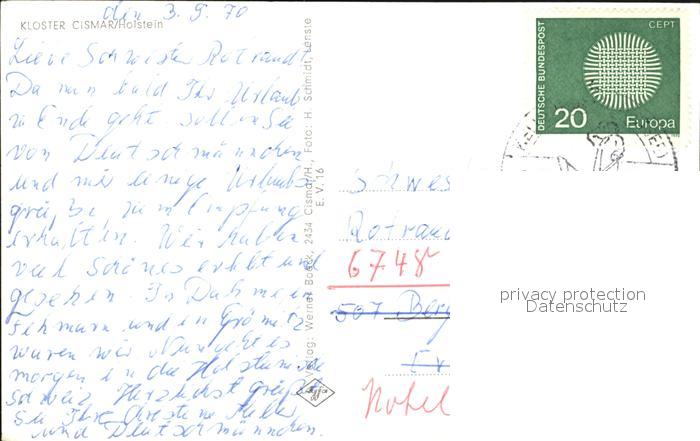 den 3. 9. 70
KLOSTER CISMAR/Holstein
Liebe Schwester Rotraud
Da nun bald Ihr Urlaub
zu Ende geht sollen Sie
von Deutschmännchen
und mir einige Urlaubs
grüße zum Empfang
erhalten. Wir haben
viel Schönes erlebt und
gesehen. In Dahme in
Fehmarn und in Grömitz
waren wir. Nun geht es
morgen in die Holsteinische
Schweiz. Herzlichst grüßt
Sie Ihre Christene
und Deutschmännchen.
Verlag: Werner Bobeck, 2434 Cismar/H., Foto: H. Schmidt, Lenste
E. V. 16
DEUTSCHE BUNDESPOST
CEPT
20 Europa
Schwes
Rotrau
6748
507 Berg
privacy protection
Datenschutz